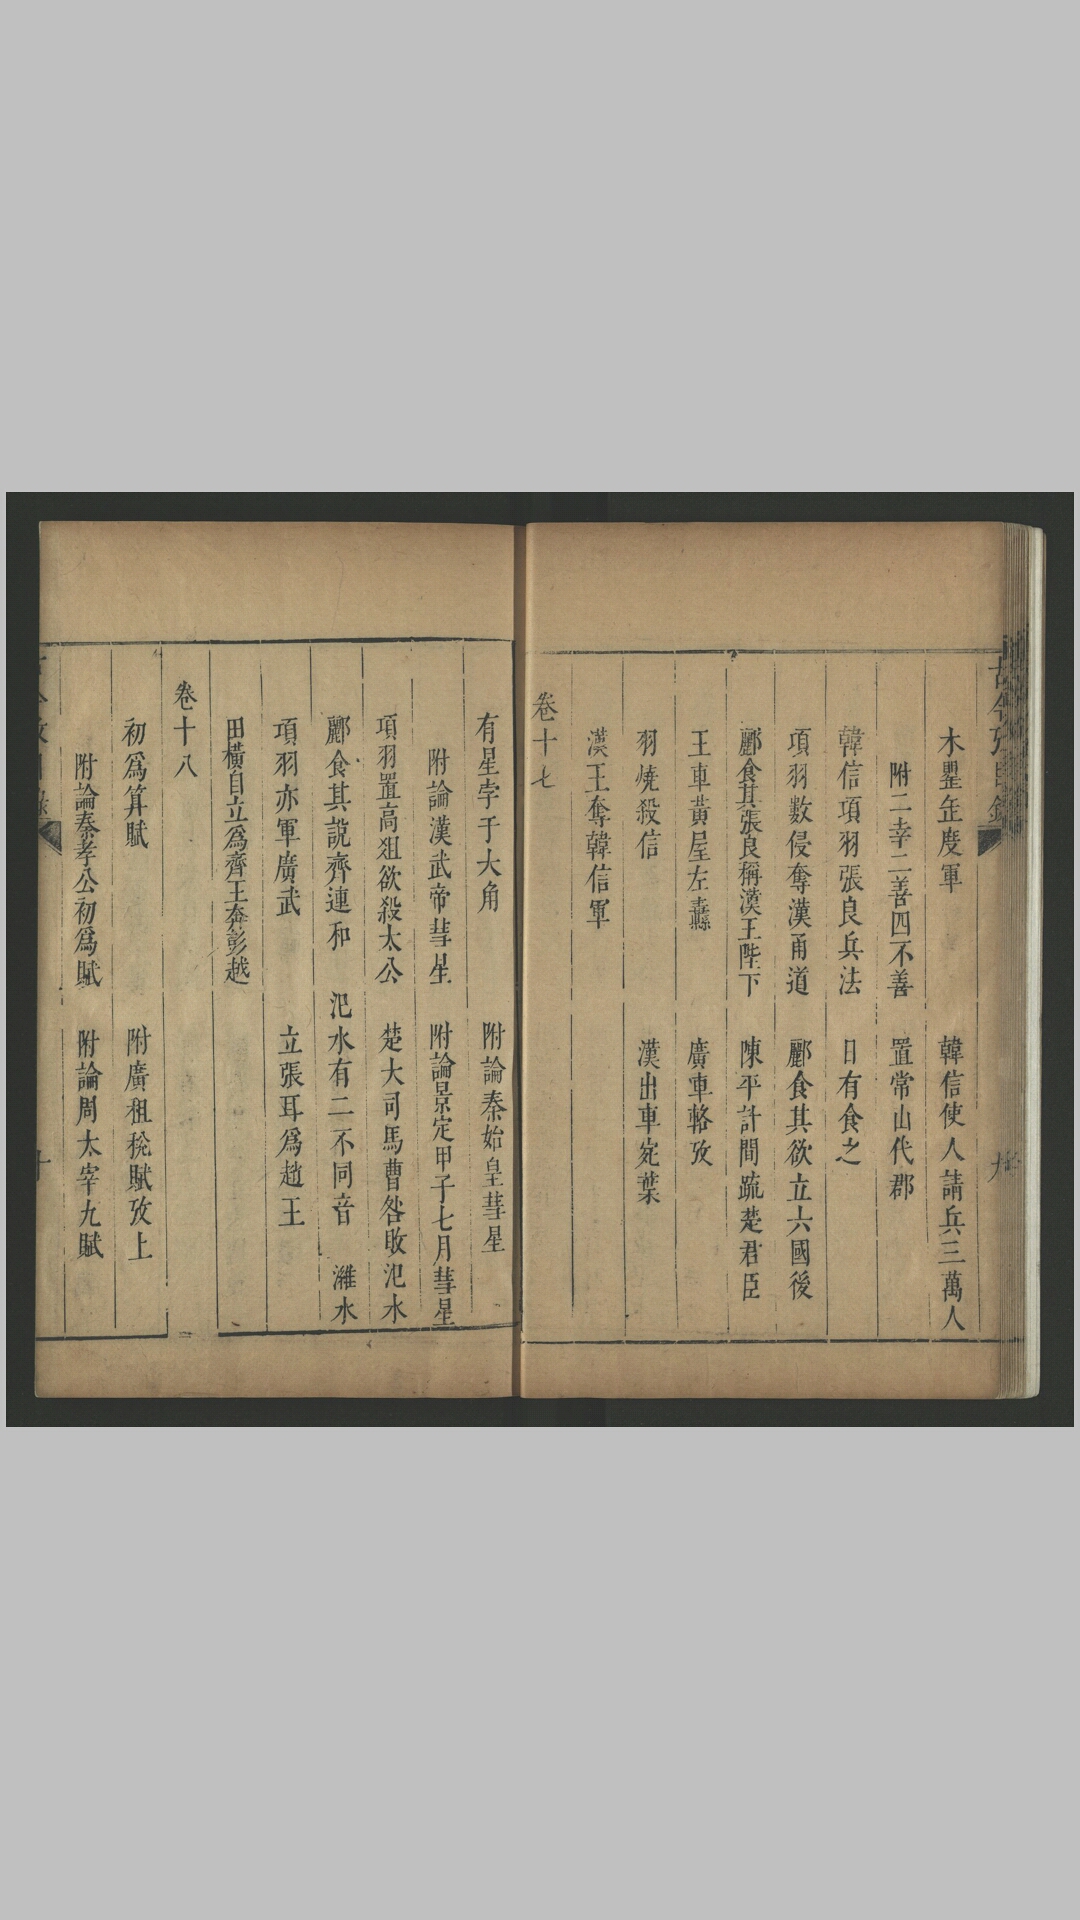 木罌缻度軍　韓信使人請兵三萬人
附二幸二善四不善　置常山代郡
韓信項羽張良兵法　日有食之
項羽數侵奪漢甬道　酈食其欲立六國後
酈食其張良稱漢王陛下　陳平計間疏楚君臣
王車黃屋左纛　廣車輅攷
羽燒殺信　漢出軍宛葉
漢王奪韓信軍
卷十七
有星孛于大角　附論秦始皇彗星
附論漢武帝彗星　附論景定甲子七月彗星
項羽置高俎欲殺太公　楚大司馬曹咎敗汜水
酈食其說齊連和　汜水有二不同音　濰水
項羽亦軍廣武　立張耳爲趙王
田橫自立爲齊王奔彭越
卷十八
初爲算賦　附廣租稅賦攷上
附論秦孝公初爲賦　附論周太宰九賦